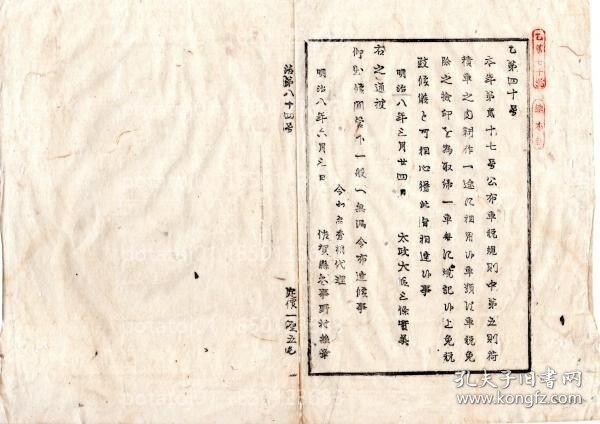 乙第四十号
本年第貳十七号公布車税規則中第五則荷
積車之内耕作一途ニ相用ル車類ハ車税免
除之検印を為取締一車毎ニ烙記ル上免税
致候儀と可相心得此旨相達ル事
明治八年三月廿四日 太政大臣三條實美
右之通被
仰出候関管下一般へ無漏令布達候事
明治八年六月三日
令代理
佐賀縣参事野村
法第八十四号
定價一厘五毛
孔夫子旧书网
kongfz.com